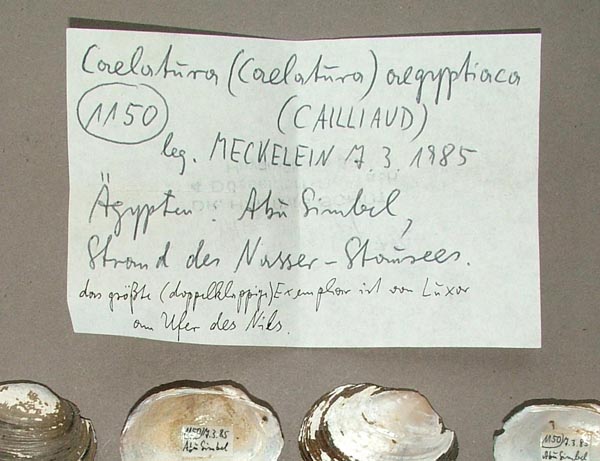 Caelatura (Caelatura) aegyptiaca
1150 (CAILLIAUD)
leg. MECKELEIN 17.3.1985
Ägypten: Abu Simbel,
Strand des Nasser-Stausees.
das größte (doppelklappige) Exemplar ist von Luxor
am Ufer des Nils.
1150/17.3.85
Abu Simbel
1150/17.3.85
Abu Simbel